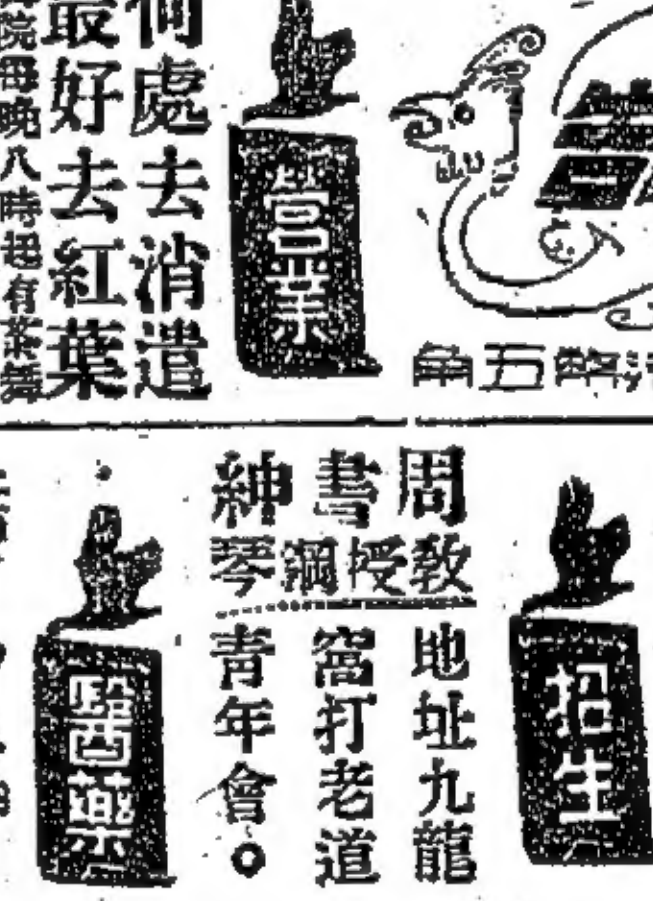 何處去消遣
最好去紅葉
院每晚八時起有茶舞
營業
幣五角
招生
周書紳
教授鋼琴
地址九龍
窩打老道
青年會。
醫藥